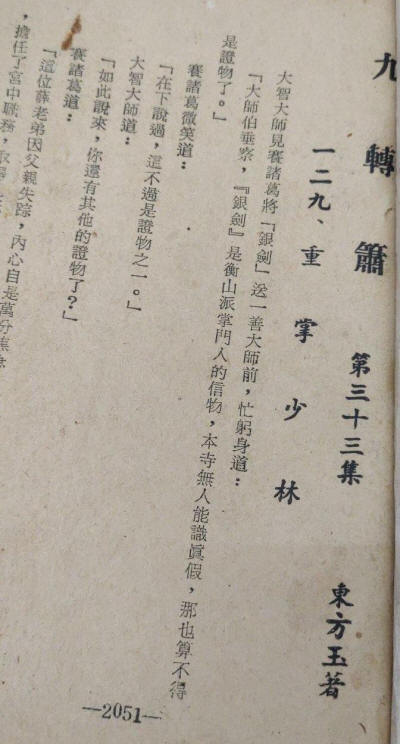 九轉簫　第三十三集　東方玉著
一二九、重掌少林
大智大師見賽諸葛將「銀劍」送一善大師前，忙躬身道：
「大師伯垂察，『銀劍』是衡山派掌門人的信物，本寺無人能識眞假，那也算不得
是證物了。」
賽諸葛微笑道：
「在下說過，這不過是證物之一。」
大智大師道：
「如此說來，你還有其他的證物了？」
賽諸葛道：
「這位薛老弟因父親失踪，內心自是萬分焦
，擔任了宮中職務，取得
—2051—